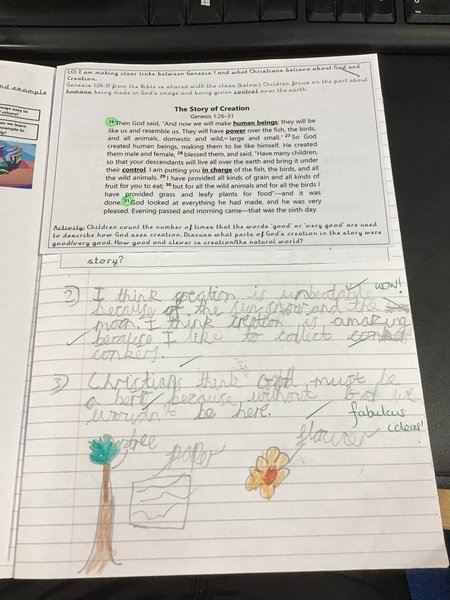 LO: I am making clear links between Genesis 1 and what Christians believe about God and
Creation.
Genesis 1:26-31 from the Bible is shared with the class (below). Children focus on the part about
humans being made in God's image and being given control over the earth.
The Story of Creation
Genesis 1:26-31
26 Then God said, "And now we will make human beings; they will be
like us and resemble us. They will have power over the fish, the birds,
and all animals, domestic and wild, large and small." 27 So God
created human beings, making them to be like himself. He created
them male and female, 28 blessed them, and said, "Have many children,
so that your descendants will live all over the earth and bring it under
their control. I am putting you in charge of the fish, the birds, and all
the wild animals. 29 I have provided all kinds of grain and all kinds of
fruit for you to eat; 30 but for all the wild animals and for all the birds I
have provided grass and leafy plants for food"—and it was
done. 31 God looked at everything he had made, and he was very
pleased. Evening passed and morning came—that was the sixth day.
Activity: Children count the number of times that the words 'good' or 'very good' are used
to describe how God sees creation. Discuss what parts of God's creation in the story were
good/very good. How good and clever is creation/the natural world?
story?
2) I think creation is
because of the sun and the
moon. I think creation is amazing
because I like to collect
conkers.
WOW!
3) Christians think god must be
a because without God we
wouldn't be here.
fabulous
ideas!
tree
paper
flower
nd example